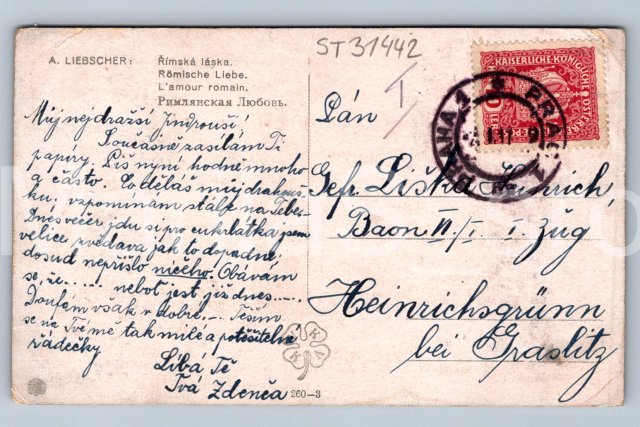 ST31442
A. LIEBSCHER: Římská láska.
Römische Liebe.
L'amour romain.
Римлянская Любовь.
Můj nejdražší Jindroušı́
Současně zasílám Ti
papíry. Piš nyní hodně mnoho
a často. Co děláš můj drahouš-
ku, vzpomínám stále na Tebe.
Dnes večer jdu si pro cukrlátka jsem
velice zvědava jak to dopadne,
dosud nepřišlo ničeho. Obávám
se, že..... neboť jest již dnes.....
Doufám však v dobré.... Těším
se na Tvé mě tak milé a potěšitelné
řádečky
Líbá Tě
Tvá Zdenča
260-3
KAISERLICHE KÖNIGLICHE
PRAHA 1 PRAG 1
Pán
Gefr. Liška Heinrich,
Baon II./I. I. Zug
Heinrichsgrünn
bei Graslitz